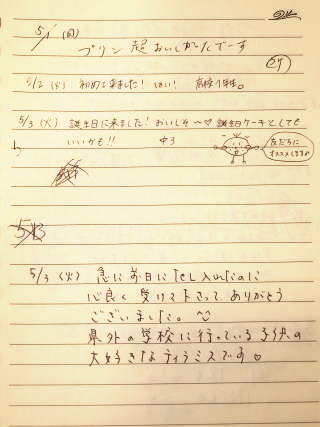 5/1 (月)
プリン 超 おいしかったでーす
5/2 (火) 初めて来ました! はい! 高校1年生。
5/3 (火) 誕生日に来ました! おいしそ〜♡ 誕生日ケーキとしても
いいかも!! 中3
友だちに
オススメしますね
5/3
5/3 (火) 急にお日にたし入れたのに
心良く受けて下さってありがとう
ございました。
県外の学校に行っている子供の
大好きなティラミスです。